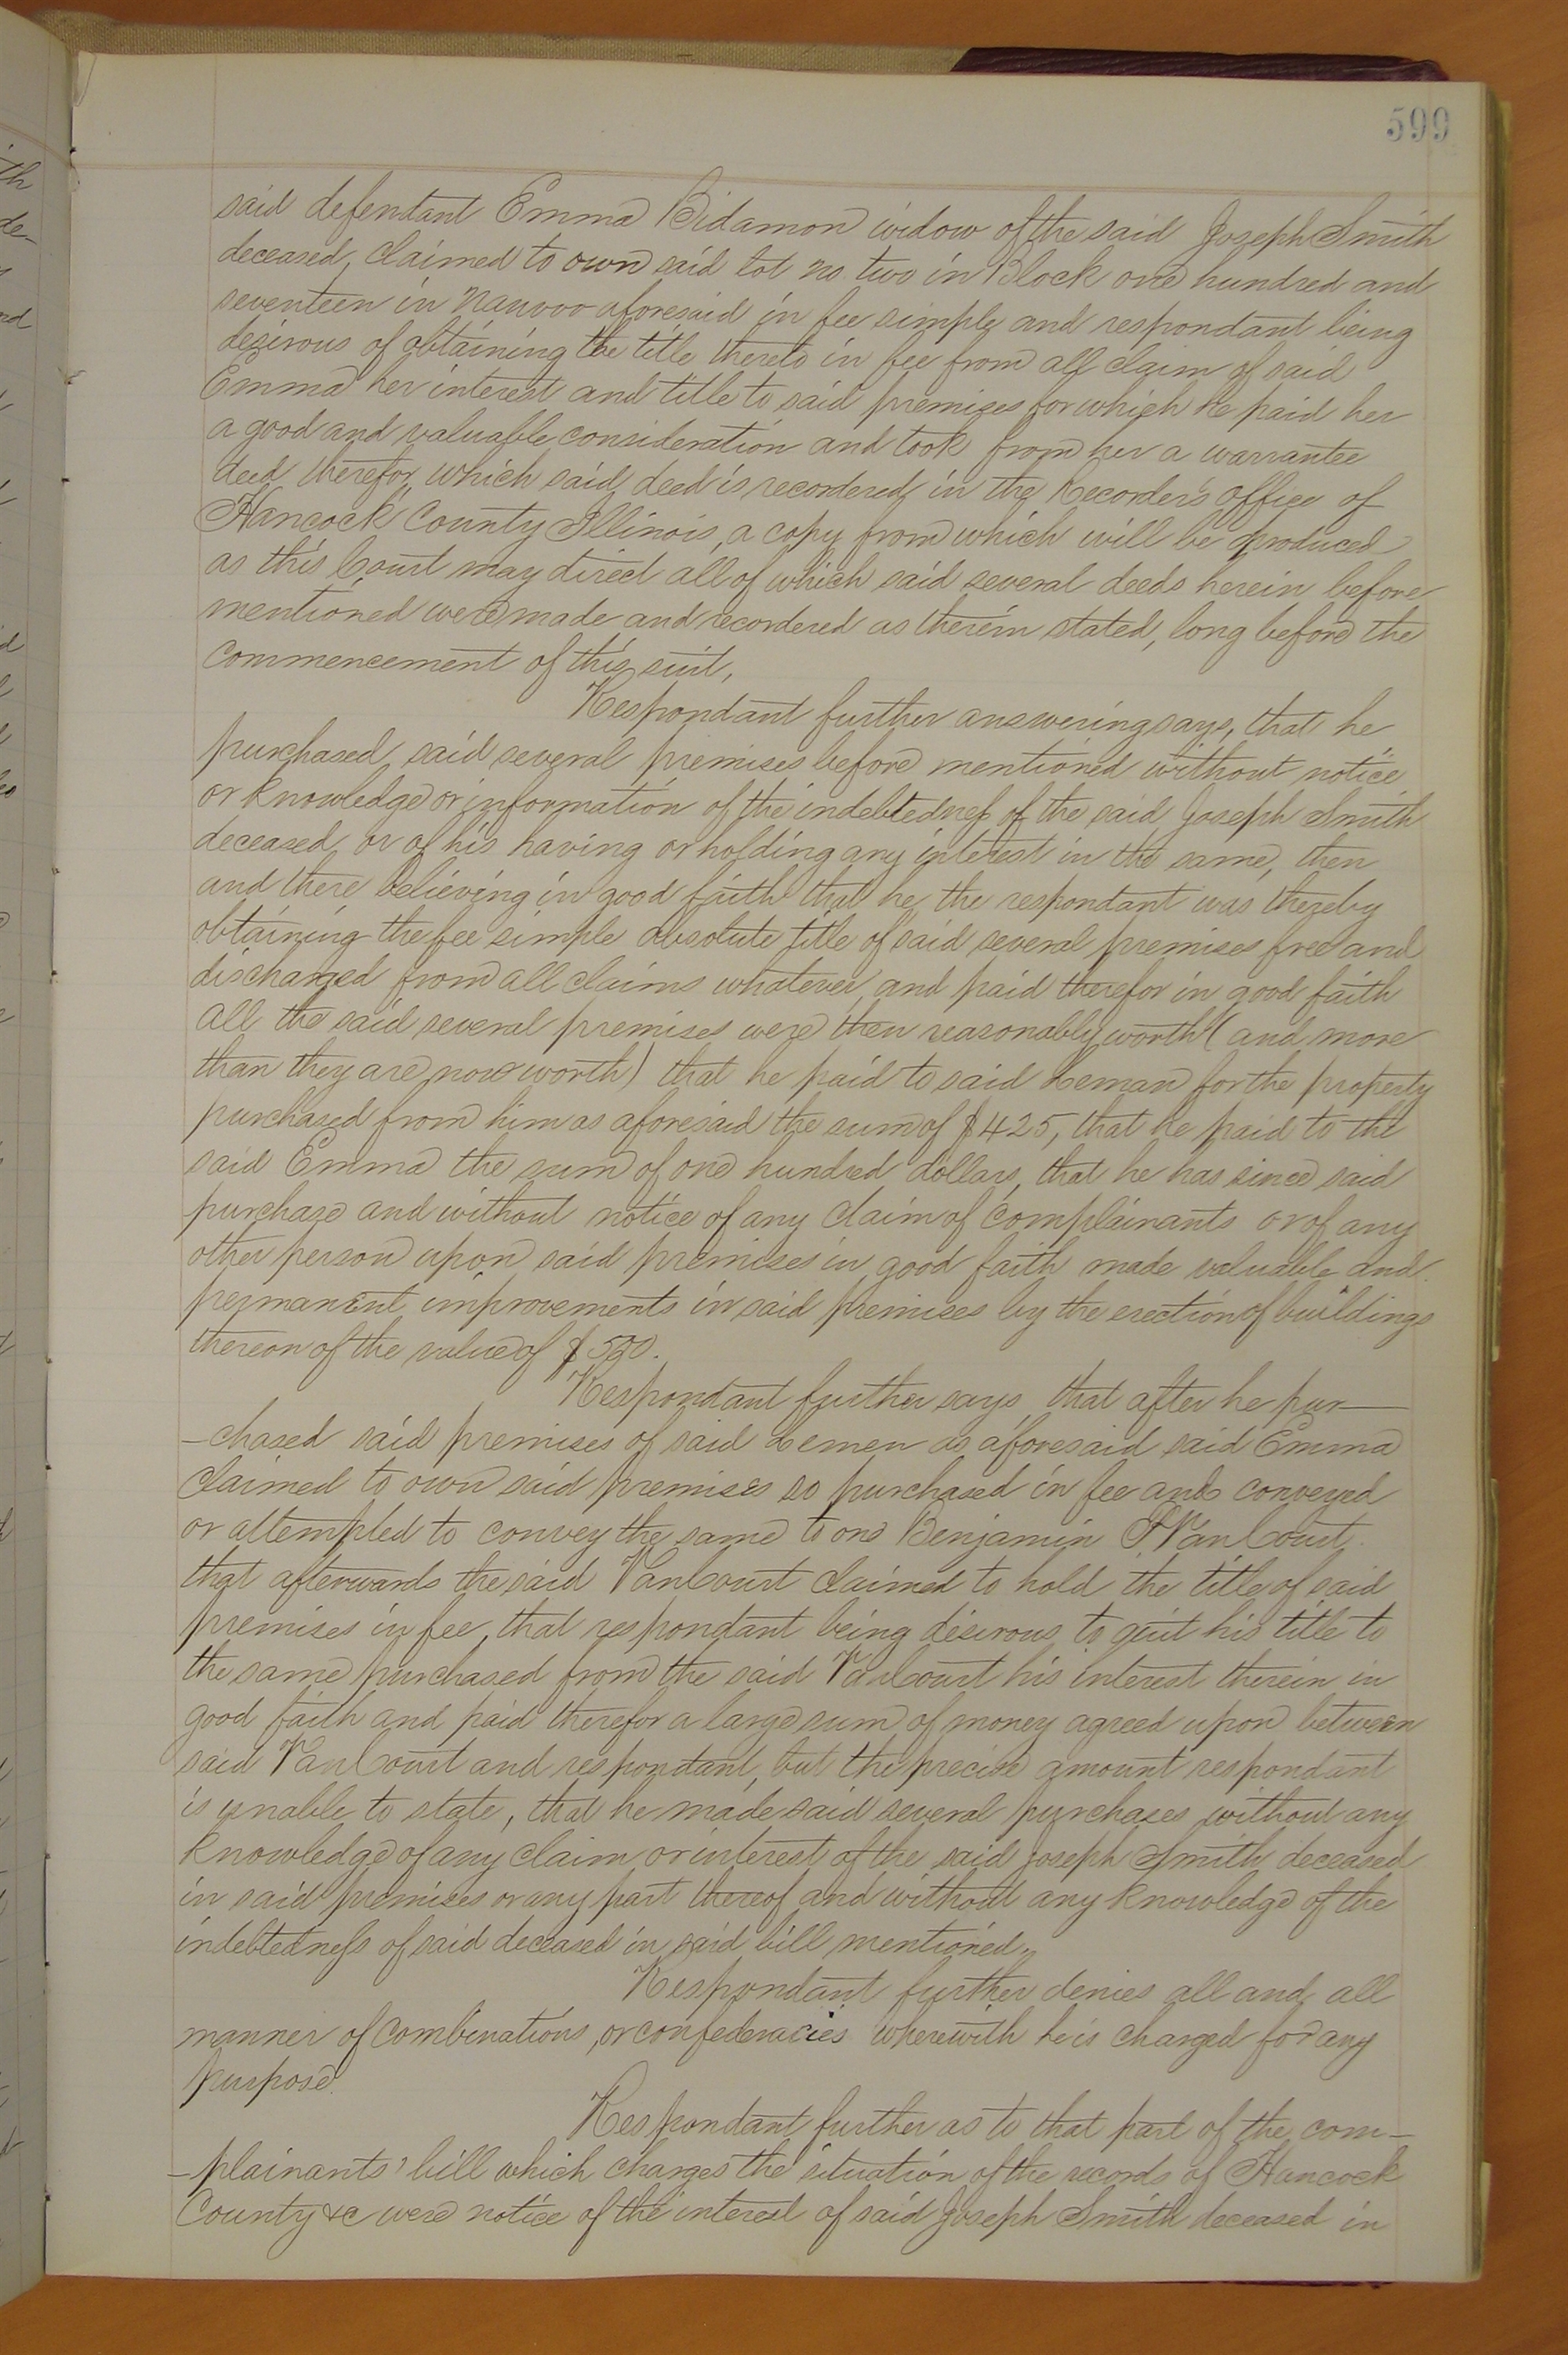 599
said defendant Emma Bidamon widow of the said Joseph Smith
deceased, claimed to own said lot no. two in Block one hundred and
seventeen in Nauvoo aforesaid in fee simple and respondant being
desirous of obtaining the title thereto in fee from all claim of said
Emma her interest and title to said premises for which he paid her
a good and valuable consideration and took from her a warrantee
deed therefor, which said deed is recordered in the Recorder's office of
Hancock County Illinois, a copy from which will be produced
as this Court may direct all of which said several deeds herein before
mentioned were made and recordered as therein stated, long before the
commencement of this suit,
Respondant further answering says, that he
purchased said several premises before mentioned without notice
or knowledge or information of the indebtedness of the said Joseph Smith
deceased or of his having or holding any interest in the same, then
and there believing in good faith that he the respondant was thereby
obtaining the fee simple absolute title of said several premises free and
discharged from all claims whatever and paid therefor in good faith
all the said several premises were then reasonably worth (and more
than they are now worth) that he paid to said Leman for the property
purchased from him as aforesaid the sum of $425, that he paid to the
said Emma the sum of one hundred dollars, that he has since said
purchase and without notice of any claim of complainants or of any
other person upon said premises in good faith made valuable and
permanent improvements in said premises by the erection of buildings
thereon of the value of $500.
Respondant further says that after he pur-
-chased said premises of said Lemen as aforesaid said Emma
claimed to own said premises so purchased in fee and conveyed
or attempted to convey the same to one Benjamin VanCourt
that afterwards the said VanCourt claimed to hold the title of said
premises in fee, that respondant being desirous to quit his title to
the same purchased from the said VanCourt his interest therein in
good faith and paid therefor a large sum of money agreed upon between
said VanCourt and respondant, but the precise amount respondant
is unable to state, that he made said several purchases without any
knowledge of any claim or interest of the said Joseph Smith deceased
in said premises or any part thereof and without any knowledge of the
indebtedness of said deceased in said bill mentioned.
Respondant further denies all and all
manner of combinations, or confederacies wherewith he is charged for any
purpose.
Respondant further as to that part of the com-
-plainants' bill which charges the situation of the records of Hancock
County &c were notice of the interest of said Joseph Smith deceased in